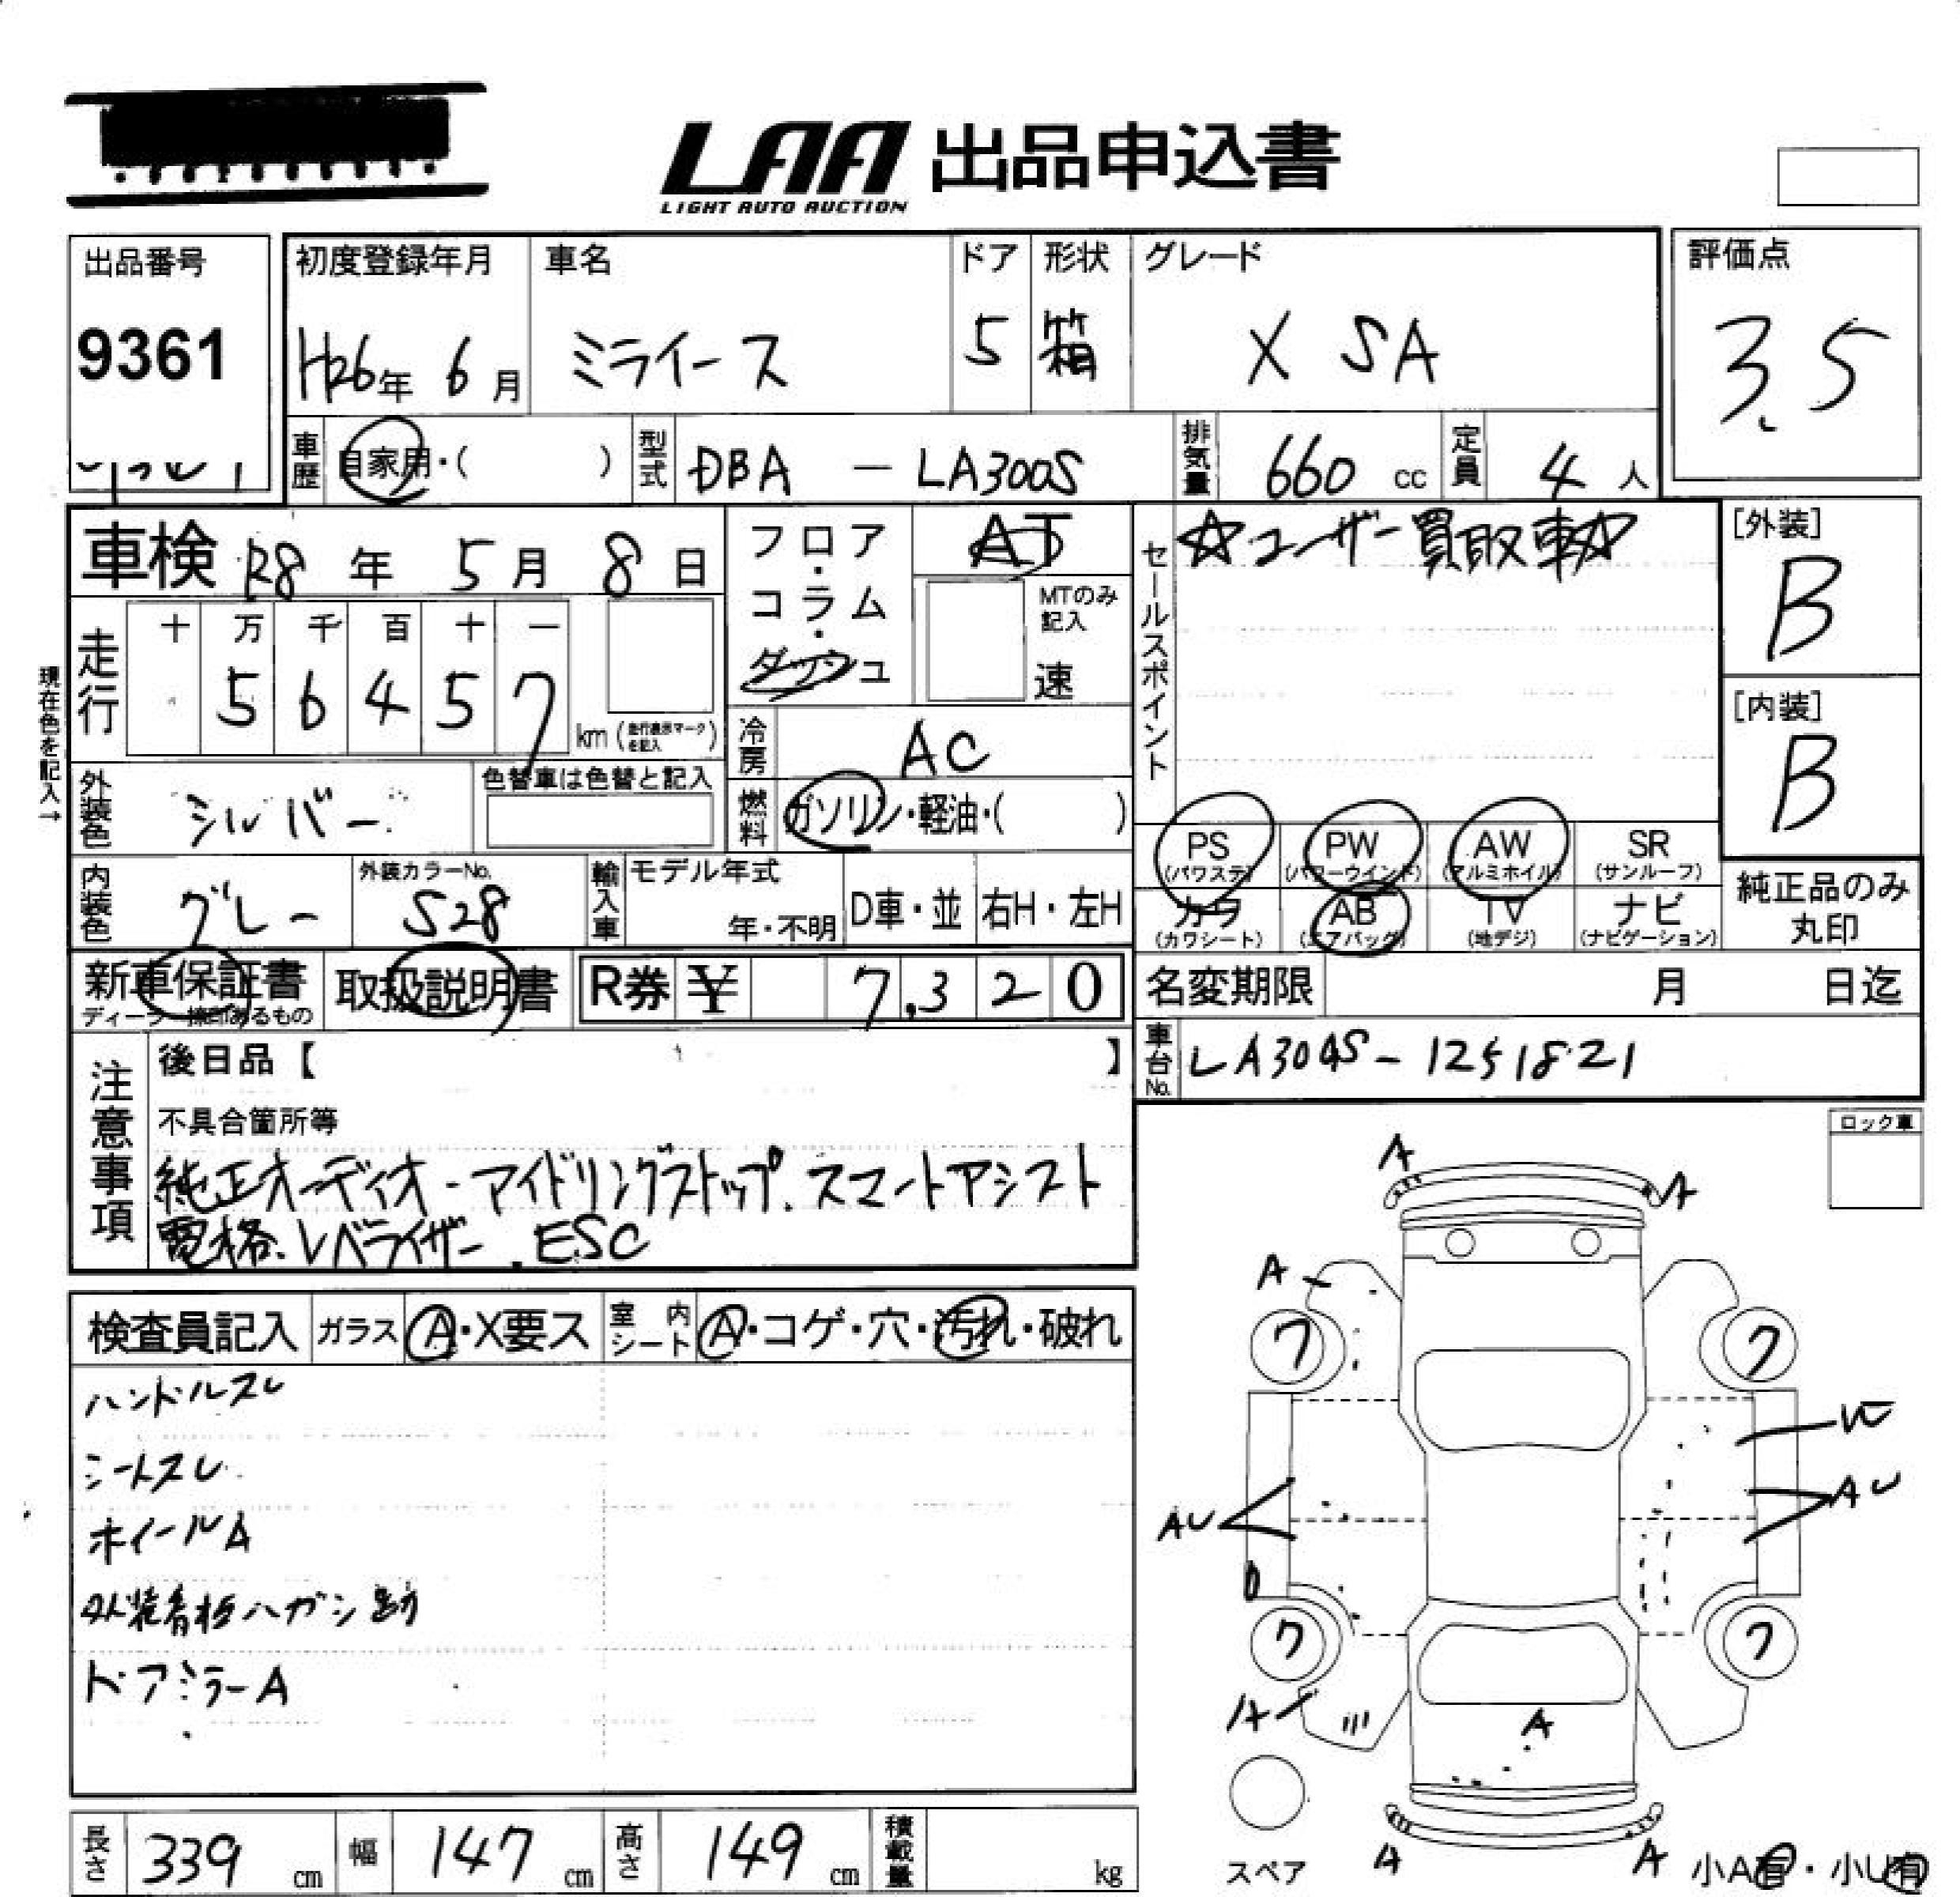 LAA 出品申込書
LIGHT AUTO AUCTION
出品番号
9361
初度登録年月
H26年 6月
車名
ミライース
ドア
5
形状
箱
グレード
X SA
評価点
3.5
車歴 自家用・( )
型式 DBA － LA300S
排気量 660 cc
定員 4 人
車検 R8 年 5 月 8 日
フロア・コラム・ダッシュ
AT
MTのみ記入
速
セールスポイント
☆ユーザー買取車☆
[外装]
B
[内装]
B
現在色を記入→
走行
十 万 千 百 十 一
5 6 4 5 7
km (走行表示マークを記入)
冷房 AC
外装色 シルバー
色替車は色替と記入
燃料 ガソリン・軽油・( )
PS (パワステ)
PW (パワーウインド)
AW (アルミホイル)
SR (サンルーフ)
カワ (カワシート)
AB (エアバッグ)
TV (地デジ)
ナビ (ナビゲーション)
純正品のみ
丸印
内装色 グレー
外装カラーNo. S28
輸入車
モデル年式
年・不明
D車・並
右H・左H
新車保証書
取扱説明書
R券 ¥ 7,320
名変期限 月 日迄
車台No. LA300S－1251821
注意事項
後日品【 】
不具合箇所等
純正オーディオ-アイドリングストップ.スマートアシスト
電格.レベライザー.ESC
ロック車
検査員記入
ガラス A・X要ス
室内シート A・コゲ・穴・汚れ・破れ
ハンドルスレ
シートスレ
ホイールA
外装看板ハガシ跡
ドアミラーA
A
A
A
ワ
ワ
AU
AU
ワ
ワ
A
A
A
A
スペア
小A有・小U有
長さ 339 cm
幅 147 cm
高さ 149 cm
積載量 kg